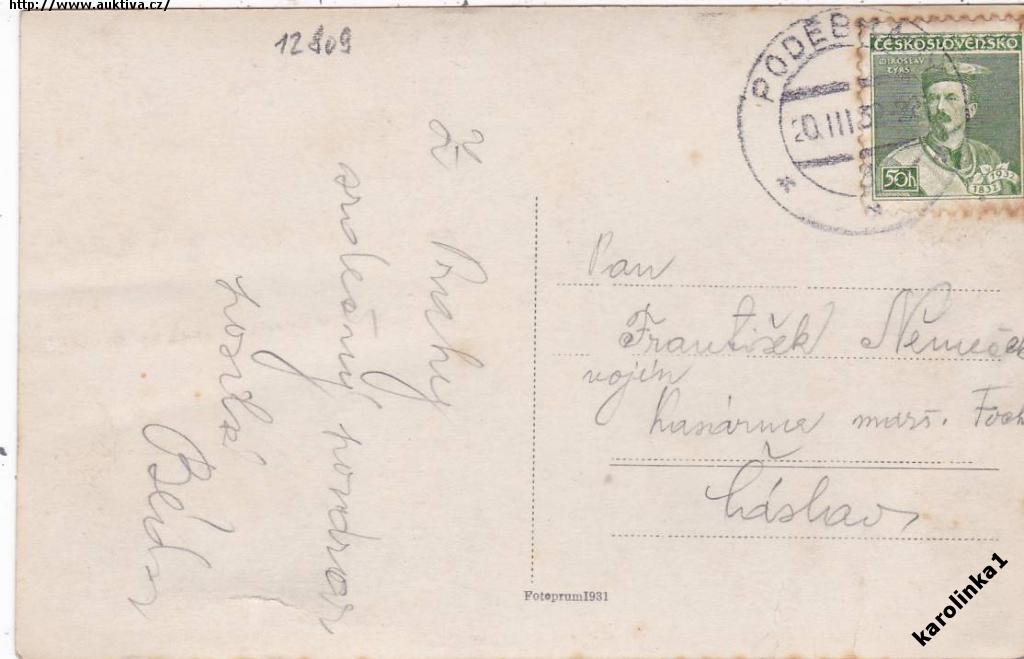 http://www.auktiva.cz/
12909
Z Prahy
srdečný pozdrav
zasílá
PODĚBR
20.III.3
ČESKOSLOVENSKO
MIROSLAV
TYRŠ
50h
1832 1932
Pan
František Němeček
vojín
kasárna marš. Foch
Čáslav
Fotoprum1931
karolinka1